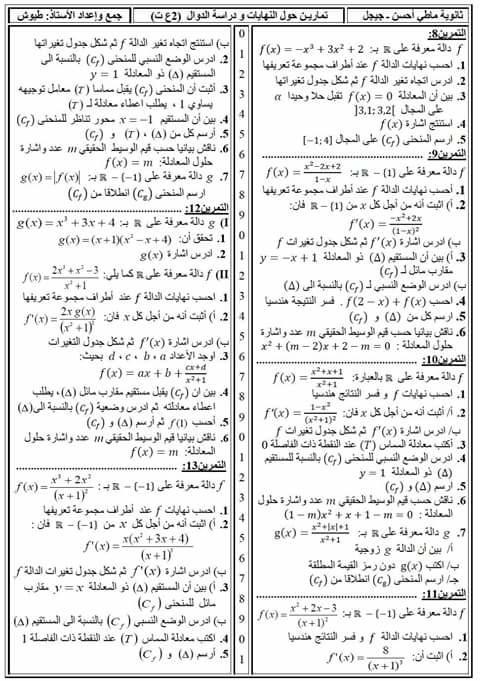 ثانوية ماطي أحسن - جيجل
تمارين حول النهايات و دراسة الدوال (2ع ت)
جمع وإعداد الأستاذ: طيوش
التمرين8:
f دالة معرفة على ℝ بـ: f(x) = −x³ + 3x² + 2
1. احسب نهايات الدالة f عند أطراف مجموعة تعريفها
2. ادرس اتجاه تغير الدالة f ثم شكل جدول تغيراتها
3. بين أن المعادلة f(x) = 0 تقبل حلا وحيدا α
في المجال ]3,1; 3,2[
4. استنتج إشارة f(x)
5. ارسم المنحنى (Cf) على المجال [−1; 4]
التمرين9:
f دالة معرفة على ℝ − {1} بـ: f(x) = (x²−2x+2)/(1−x)
1. أحسب نهايات الدالة f عند أطراف مجموعة تعريفها
2. أ) اثبت أنه من أجل كل x من ℝ − {1} فان:
f′(x) = (−x²+2x)/(1−x)²
ب) ادرس اشارة f′(x) ثم شكل جدول تغيرات f
3. أ) بين أن المستقيم (Δ) ذو المعادلة y = −x + 1
مقارب مائل لـ (Cf)
ب) ادرس الوضع النسبي لـ (Cf) بالنسبة الى (Δ)
4. احسب f(2 − x) + f(x). فسر النتيجة هندسيا
5. ارسم كل من (Δ) و (Cf)
6. ناقش بيانيا حسب قيم الوسيط الحقيقي m عدد واشارة
حلول المعادلة : x² + (m − 2)x + 2 − m = 0
التمرين10:
f دالة معرفة على ℝ بالعبارة: f(x) = (x²+x+1)/(x²+1)
1. احسب نهايات f و فسر النتائج هندسيا
2. أ/ أثبت أنه من أجل كل x فان: f′(x) = (1−x²)/(x²+1)²
ب/ ادرس اشارة f′(x) ثم شكل جدول تغيرات f
3. أكتب معادلة المماس (T) عند النقطة ذات الفاصلة 0
4. ادرس الوضع النسبي للمنحنى (Cf) بالنسبة للمستقيم
(Δ) ذو المعادلة y = 1
5. ارسم (Δ) و (Cf)
6. ناقش حسب قيم الوسيط الحقيقي m عدد واشارة حلول
المعادلة : (1 − m)x² + x + 1 − m = 0
7. g دالة معرفة على ℝ بـ: g(x) = (x²+|x|+1)/(x²+1)
أ/ بين أن الدالة g زوجية
ب/ اكتب g(x) دون رمز القيمة المطلقة
جـ/ ارسم المنحنى (Cg) انطلاقا من (Cf)
التمرين11:
f دالة معرفة على ℝ − {−1} بـ: f(x) = (x²+2x−3)/(x+1)²
1. احسب نهايات الدالة f و فسر النتائج هندسيا
2. أ) اثبت أن: f′(x) = 8/(x+1)³
ب) استنتج اتجاه تغير الدالة f ثم شكل جدول تغيراتها
2. ادرس الوضع النسبي للمنحنى (Cf) بالنسبة الى
المستقيم (Δ) ذو المعادلة y = 1
3. أثبت أن المنحنى (Cf) يقبل مماسا (T) معامل توجيهه
يساوي 1 ، يطلب اعطاء معادلة لـ (T)
4. بين أن المستقيم x = −1 محور تناظر للمنحنى (Cf)
5. أرسم كل من (Δ) ، (T) و (Cf)
6. ناقش بيانيا حسب قيم الوسيط الحقيقي m عدد واشارة
حلول المعادلة: f(x) = m
7. g دالة معرفة على ℝ − {−1} بـ: g(x) = |f(x)|
ارسم المنحنى (Cg) انطلاقا من (Cf)
التمرين12:
I) g دالة معرفة على ℝ بـ: g(x) = x³ + 3x + 4
1. تحقق أن: g(x) = (x+1)(x² − x + 4)
2. ادرس اشارة g(x)
II) f دالة معرفة على ℝ كما يلي: f(x) = (2x³+x²−3)/(x²+1)
1. احسب نهايات الدالة f عند أطراف مجموعة تعريفها
2. أ) أثبت أنه من أجل كل x فان: f′(x) = 2x g(x)/(x²+1)²
ب) ادرس اشارة f′(x) ثم شكل جدول التغيرات
3. اوجد الأعداد a ، b ، c ، d بحيث:
f(x) = ax + b + (cx+d)/(x²+1)
4. بين ان (Cf) يقبل مستقيم مقارب مائل (Δ)، يطلب
اعطاء معادلته ثم ادرس وضعية (Cf) بالنسبة الى(Δ)
5. أحسب f(1) ثم أرسم (Δ) و (Cf)
6. ناقش بيانيا قيم الوسيط الحقيقي m عدد واشارة حلول
المعادلة: f(x) = m
التمرين13:
f دالة معرفة على ℝ − {−1} بـ: f(x) = (x³+2x²)/(x+1)²
1. احسب نهايات الدالة f عند أطراف مجموعة تعريفها
2. أ) اثبت انه من أجل كل x من ℝ − {−1} فان :
f′(x) = x(x²+3x+4)/(x+1)³
ب) ادرس اشارة f′(x) ثم شكل جدول تغيرات الدالة f
3. أ) بين أن المستقيم (Δ) ذو المعادلة y = x مقارب
مائل للمنحنى (Cf)
ب) ادرس الوضع النسبي (Cf) بالنسبة الى المستقيم (Δ)
4. اكتب معادلة المماس (T) عند النقطة ذات الفاصلة 1
5. أرسم (Δ) و (Cf)